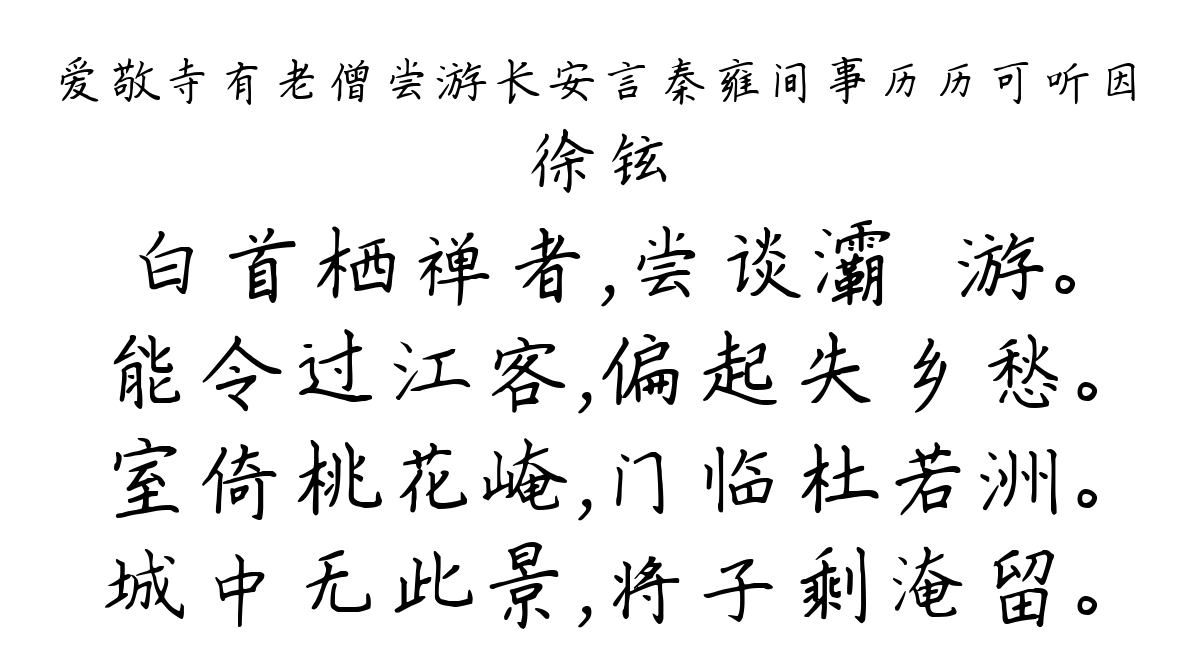 爱敬寺有老僧尝游长安言秦雍间事历历可听因
徐铉
白首栖禅者,尝谈灞 游。
能令过江客,偏起失乡愁。
室倚桃花崦,门临杜若洲。
城中无此景,将子剩淹留。